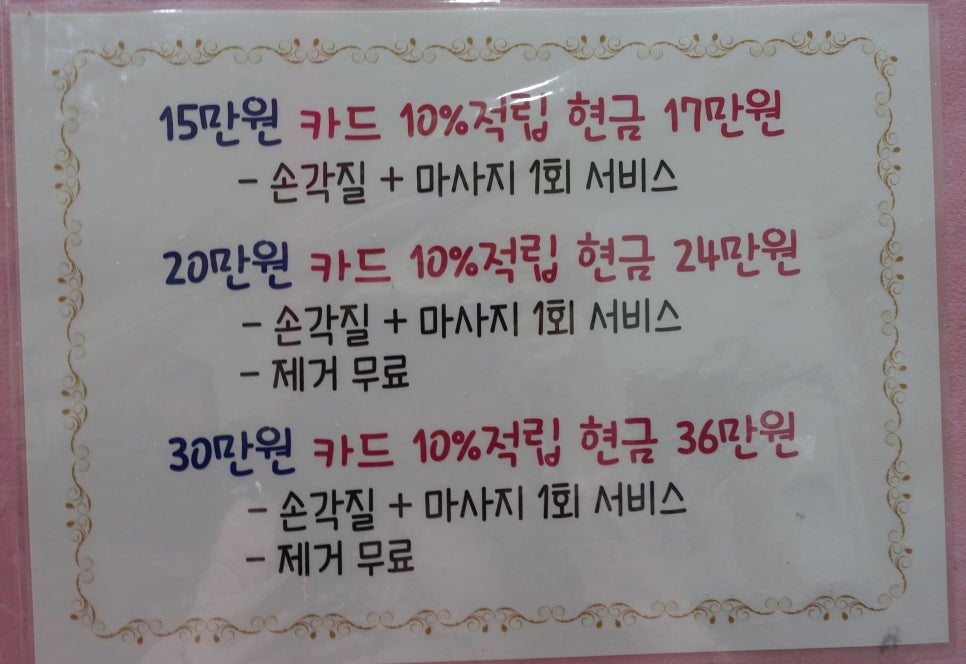 15만원 카드 10%적립 현금 17만원
- 손각질 + 마사지 1회 서비스
20만원 카드 10%적립 현금 24만원
- 손각질 + 마사지 1회 서비스
- 제거 무료
30만원 카드 10%적립 현금 36만원
- 손각질 + 마사지 1회 서비스
- 제거 무료